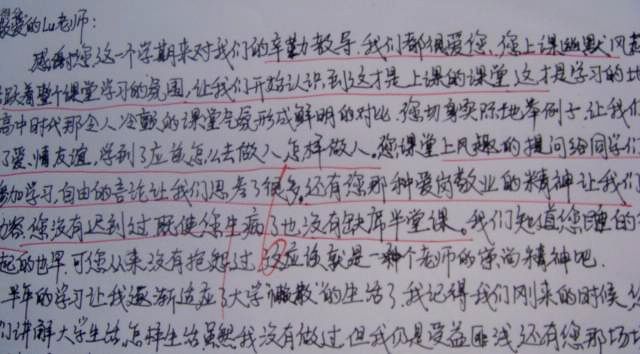 最爱的Lu老师:
感谢您这一个学期来对我们的辛勤教导,我们都很爱您,您上课幽默风
跃着整个课堂学习的氛围,让我们开始认识到这才是上课的课堂,这才是学习的
高中时代那令人冷颤的课堂气氛形成鲜明的对比,您切身实际地举例子,让我们
了爱、情友谊,学到了应该怎么去做人怎样做人。您课堂上风趣的提问给同学们
参加学习,自由的言论让我们思考了很多。还有您那种爱岗敬业的精神让我们
您没有迟到过,既使您生病了也没有缺席半堂课。我们知道您睡的
起的也早,可您从来没有抱怨过,这应该就是一种个老师的崇尚精神吧.
半年的学习让我逐渐适应了大学"懒散"的生活了,我记得我们刚来的时候,
们讲解大学生活,怎样生活虽然我没有做过,但我仍是受益匪浅,还有您那场